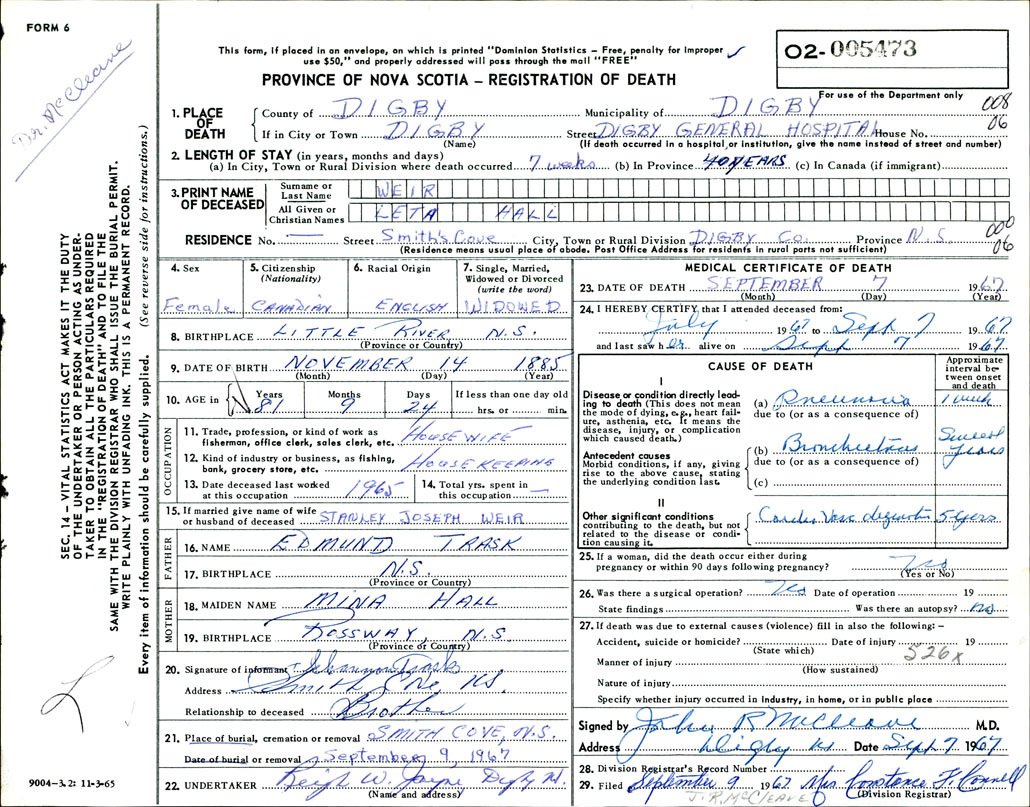 FORM 6
Dr. McCleave
This form, if placed in an envelope, on which is printed "Dominion Statistics – Free, penalty for improper
use $50," and properly addressed will pass through the mail "FREE"
02-005473
PROVINCE OF NOVA SCOTIA – REGISTRATION OF DEATH
For use of the Department only
008
06
1. PLACE OF DEATH
County of DIGBY Municipality of DIGBY
If in City or Town DIGBY Street DIGBY GENERAL HOSPITAL House No.
(Name) (If death occurred in a hospital or institution, give the name instead of street and number)
2. LENGTH OF STAY (in years, months and days)
(a) In City, Town or Rural Division where death occurred 7 weeks (b) In Province 40 YEARS (c) In Canada (if immigrant)
3. PRINT NAME OF DECEASED
Surname or Last Name WEIR
All Given or Christian Names LETA HALL
RESIDENCE No. — Street Smith's Cove City, Town or Rural Division DIGBY Co. Province N.S.
000
06
(Residence means usual place of abode. Post Office Address for residents in rural parts not sufficient)
4. Sex Female
5. Citizenship (Nationality) CANADIAN
6. Racial Origin ENGLISH
7. Single, Married, Widowed or Divorced (write the word) WIDOWED
8. BIRTHPLACE LITTLE RIVER N.S.
(Province or Country)
9. DATE OF BIRTH NOVEMBER 14 1885
(Month) (Day) (Year)
10. AGE in Years 81 Months 9 Days 24 If less than one day old hrs. or min.
OCCUPATION
11. Trade, profession, or kind of work as fisherman, office clerk, sales clerk, etc. HOUSEWIFE
12. Kind of industry or business, as fishing, bank, grocery store, etc. HOUSEKEEPING
13. Date deceased last worked at this occupation 1965
14. Total yrs. spent in this occupation —
15. If married give name of wife or husband of deceased STANLEY JOSEPH WEIR
FATHER
16. NAME EDMUND TRASK
17. BIRTHPLACE N.S.
(Province or Country)
MOTHER
18. MAIDEN NAME MINA HALL
19. BIRTHPLACE ROSSWAY, N.S.
(Province or Country)
20. Signature of informant Trask
Address Smith Cove, N.S.
Relationship to deceased Brother
21. Place of burial, cremation or removal SMITH COVE, N.S.
Date of burial or removal September 9, 1967
22. UNDERTAKER W. Jayne Digby N.S.
(Name and address)
MEDICAL CERTIFICATE OF DEATH
23. DATE OF DEATH SEPTEMBER 7 1967
(Month) (Day) (Year)
24. I HEREBY CERTIFY that I attended deceased from:
July 1967 to Sept 7 1967
and last saw her alive on Sept 7 1967
CAUSE OF DEATH
Approximate interval between onset and death
I
Disease or condition directly leading to death (This does not mean the mode of dying, e.g., heart failure, asthenia, etc. It means the disease, injury, or complication which caused death.)
(a) Pneumonia 1 week
due to (or as a consequence of)
Antecedent causes
Morbid conditions, if any, giving rise to the above cause, stating the underlying condition last.
(b) Bronchiectasis Several years
due to (or as a consequence of)
(c)
II
Other significant conditions contributing to the death, but not related to the disease or condition causing it.
Cardio Vasc degeneration 5 yrs
25. If a woman, did the death occur either during pregnancy or within 90 days following pregnancy? No
(Yes or No)
26. Was there a surgical operation? No Date of operation 19
State findings Was there an autopsy? no
27. If death was due to external causes (violence) fill in also the following: –
Accident, suicide or homicide? Date of injury 19
(State which) 526x
Manner of injury
(How sustained)
Nature of injury
Specify whether injury occurred in industry, in home, or in public place
Signed by John R McCleave M.D.
Address Digby NS Date Sept 7 1967
28. Division Registrar's Record Number
29. Filed September 9 1967 Mrs Constance F. Connell
J.R. McCLEAVE (Division Registrar)
SEC. 14 – VITAL STATISTICS ACT MAKES IT THE DUTY
OF THE UNDERTAKER OR PERSON ACTING AS UNDER-
TAKER TO OBTAIN ALL THE PARTICULARS REQUIRED
IN THE "REGISTRATION OF DEATH" AND TO FILE THE
SAME WITH THE DIVISION REGISTRAR WHO SHALL ISSUE THE BURIAL PERMIT.
WRITE PLAINLY WITH UNFADING INK. THIS IS A PERMANENT RECORD.
Every item of information should be carefully supplied. (See reverse side for instructions.)
9004–3.2: 11-3-65